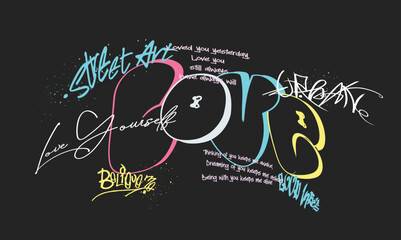 Street Art
Loved you yesterday,
Love you
still always
have always will
URBAN
Love
Love Yourself
Thinking of you keeps me awake,
Dreaming of you keeps me asleep,
Being with you keeps me alive
Believe